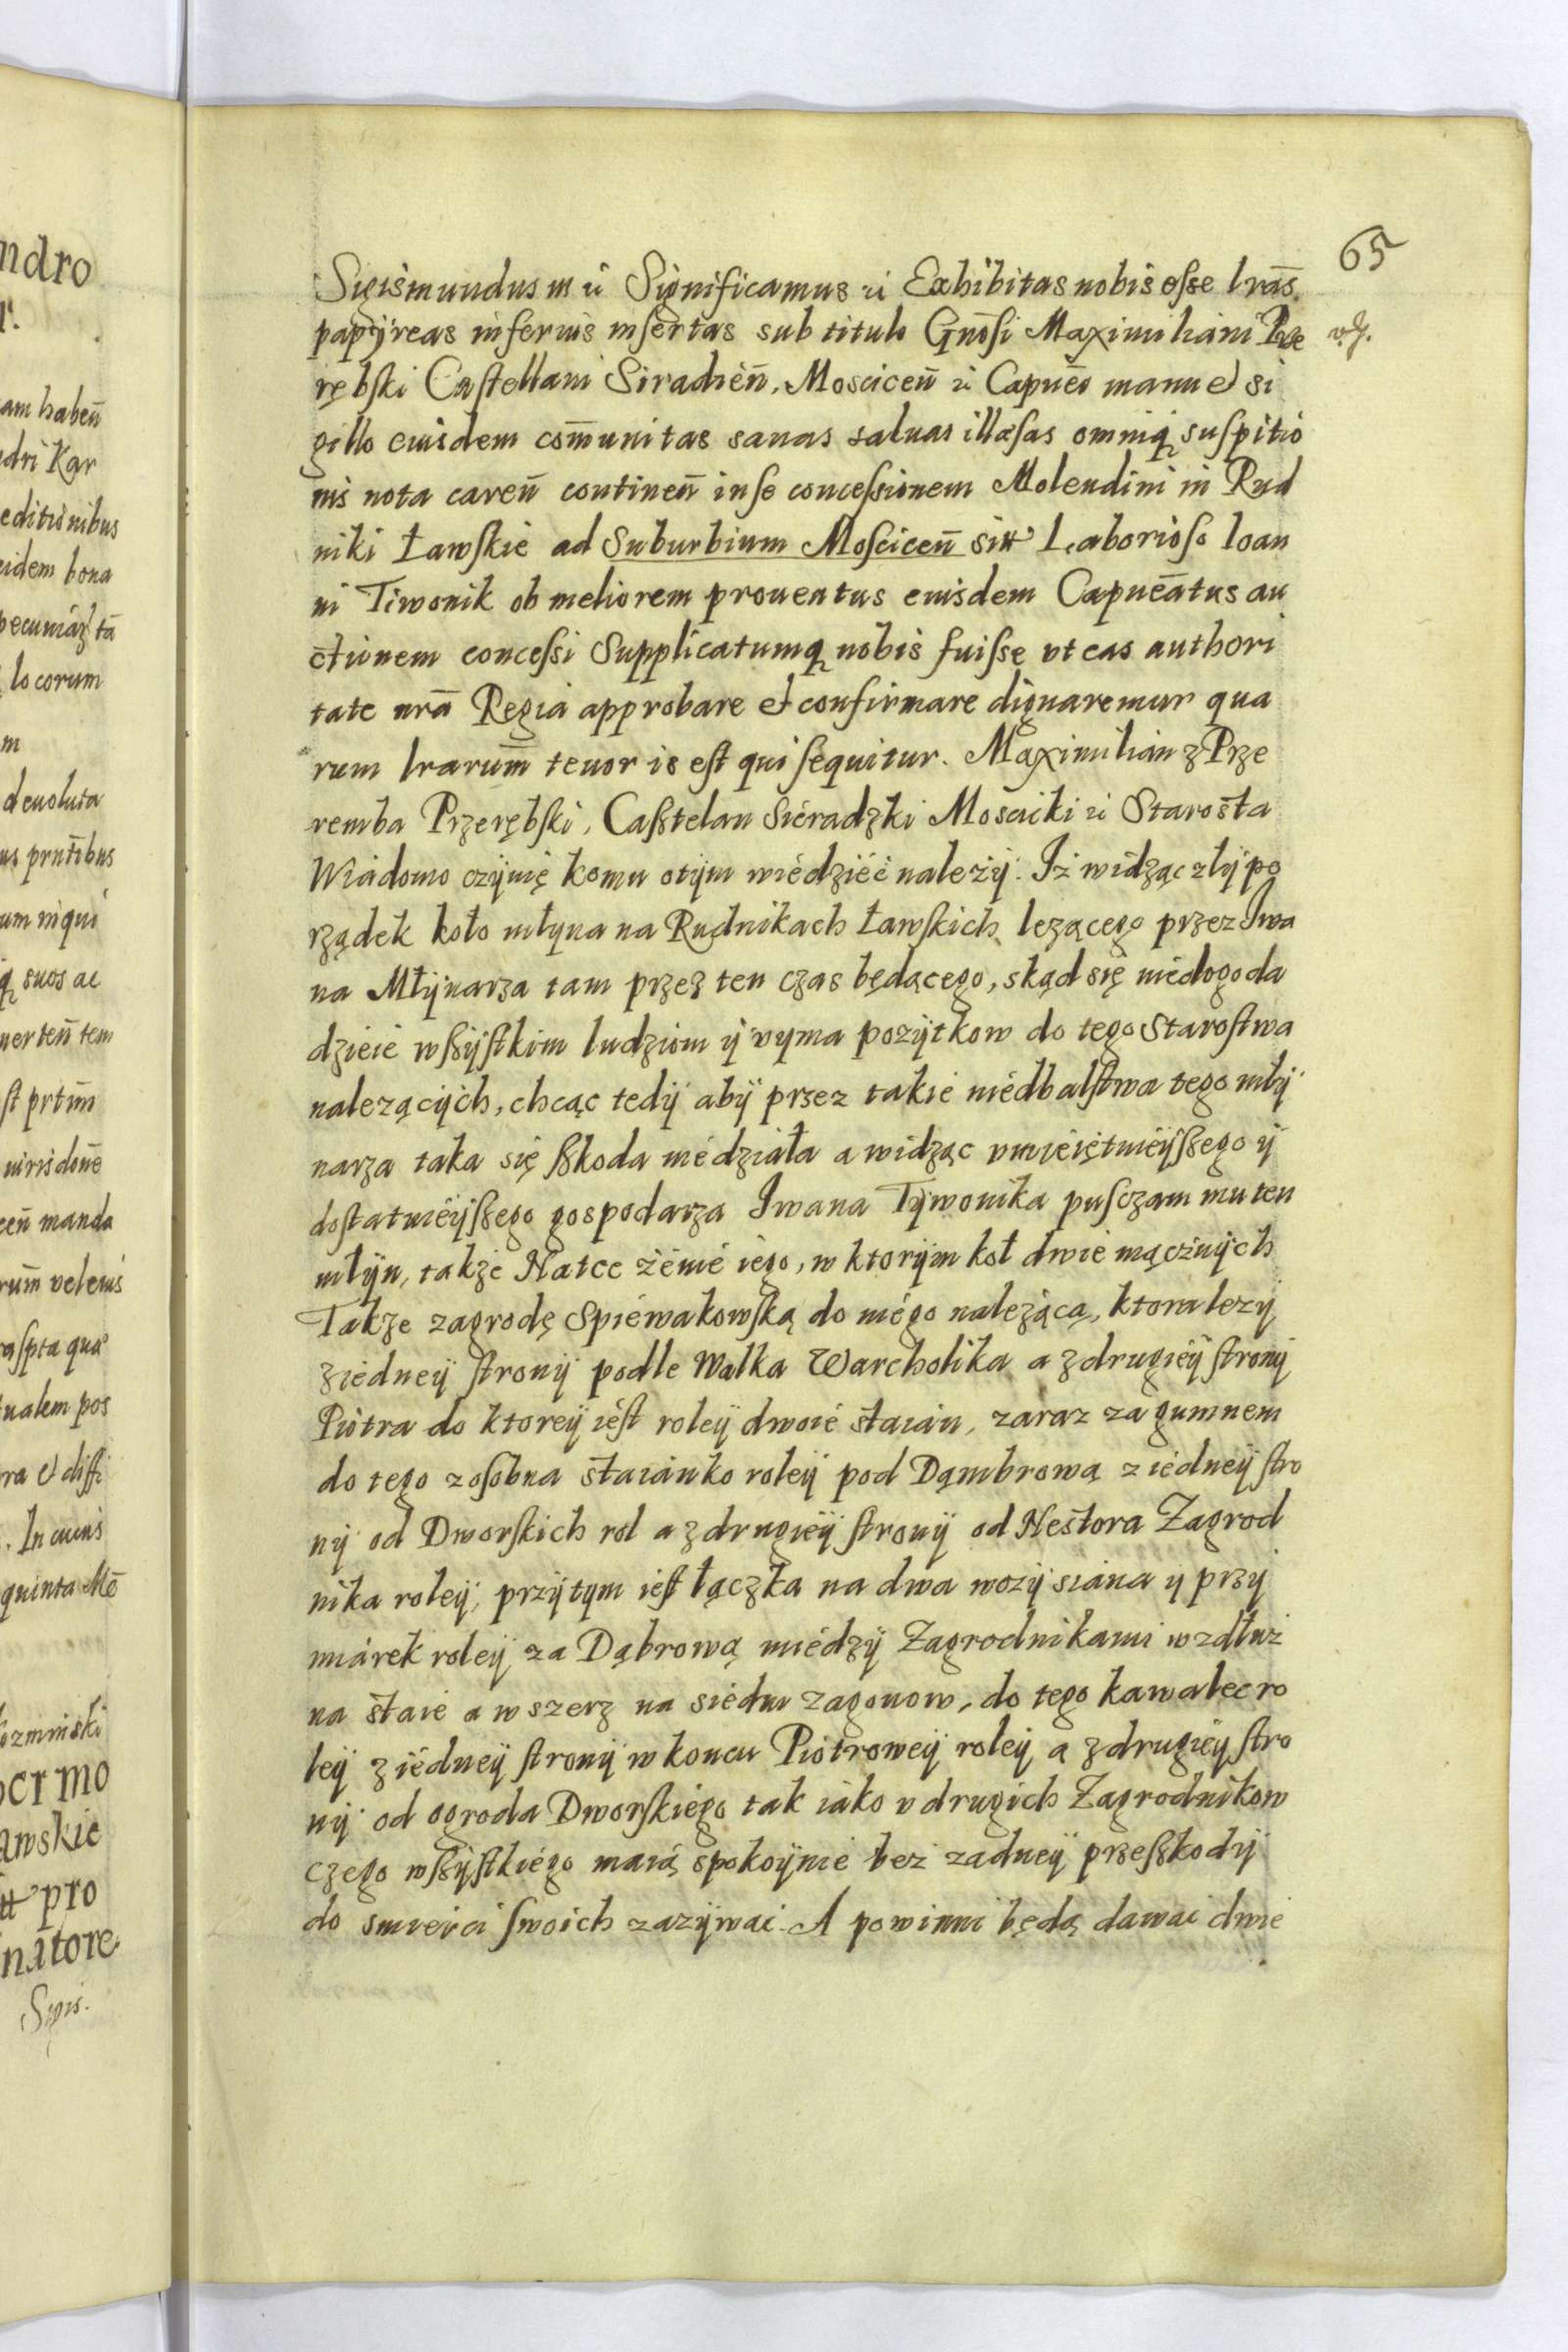 65
Sigismundus m ů Significamus ů Exhibitas nobis esse lrãs
papÿreas inferius insertas sub titulo Gnõsi Maximiliani Prze
rębski Castellani Siradień, Mosciceñ ů Capuẽo manu et si
gillo eiusdem com̃unitas sanas saluas illæsas omniq suspitio
nis nota careñ contineñ in se concessionem Molendini in Rud
niki Ławskie ad Suburbium Mosciceñ sitt Laborioso Ioan
ni Tiwonik ob meliorem prouentus eiusdem Capuẽatus au
ctionem concessi Supplicatumq nobis fuisse vt eas authori
tate nrã Regia approbare et confirmare dignaremur qua
rum lrarum̃ tenor is est qui sequitur. Maximilian z Prze
remba Przerębski, Casztelan Siéradzki Mosciki ů Starosta
Wiadomo czÿnię komu otÿm wiédziéć należÿ. Iż widząc złÿ po
rządek koło młyna na Rudnikach Ławskich lezącego przez Iwa
na Młÿnarza tam przez ten czas będącego, skąd się niédogoda
dzieie wszÿstkim ludziom ÿ vyma pozÿtkow do tego Starostwa
nalezącÿch, chcąc tedÿ abÿ przez takie niédbalstwa tego młÿ
narza taka się szkoda niédziała a widząc vmieiętniéÿszego ÿ
dostatniéÿszego gospodarza Iwana Tÿwonika pusczam mu ten
młÿn, także Natce żénié iégo, w ktorÿm kół dwié mącznÿch
Takze zagrodę Spiéwakowską do niégo nalezącą, ktora lezÿ
z iédneÿ stronÿ podle Walka Warcholika a z drugiéÿ stronÿ
Piotra do ktoreÿ iést roleÿ dwoié staian, zaraz za gumnem
do tego zosobna staianko roleÿ pod Dąmbrową z iédneÿ stro
nÿ od Dworskich rol a z drugiéÿ stronÿ od Nestora Zagrod
nika roleÿ, przÿtym iest łączka na dwa wozÿ siana y przy
miárek roleÿ za Dąbrową miédzÿ Zagrodnikami wzdłuż
na staie a wszerz na siédm zagonow, do tego kawalec ro
leÿ z iédneÿ stronÿ w koncu Piotroweÿ roleÿ a z drugiéÿ stro
nÿ od ogroda Dworskiégo tak iako v drugich Zagrodnikow
czego wszÿstkiégo maią spokoÿnié bez zadneÿ przeszkodÿ
do smierci swoich zazÿwać. A powinni będą dawać dwie